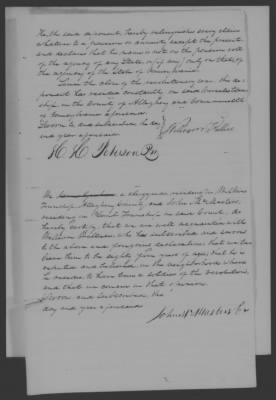 He the said deponent, hereby relinquishes every claim
whatever to a pension or annuity, except the present,
and declares that his name is not on the pension roll
of the agency of any State, or if any, only on that of
the agency of the State of Pennsylvania.
Since the close of the revolutionary war this de-
ponent has resided constantly in
ship, in the County of Allegheny and Commonwealth
of Pennsylvania aforesaid.
Sworn to and subscribed the day
and year aforesaid
H. H. Peterson
We a clergyman residing in
Township, Allegheny County, and John McMasters,
residing in Township in said County, do
hereby certify, that we are well acquainted with
who has subscribed and sworn
to the above and foregoing declaration; that we be-
lieve him to be eighty five years of age; that he is
reputed and believed, in the neighborhood where
he resides to have been a soldier of the revolution,
and that we concur in that opinion.
Sworn and subscribed, the
day and year aforesaid
John McMasters